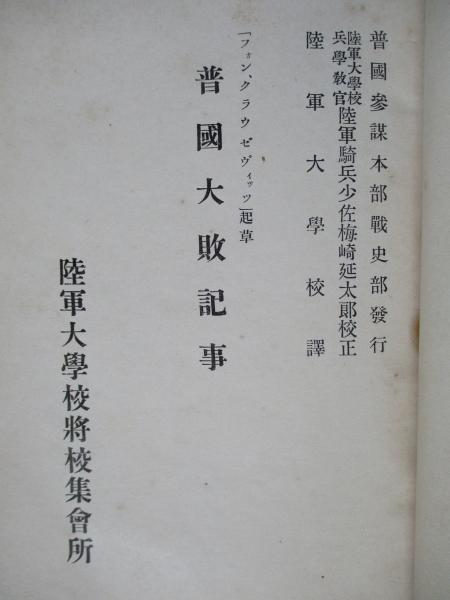 普國參謀本部戰史部發行
陸軍大學校兵學教官陸軍騎兵少佐梅崎延太郞校正
陸軍大學校譯
「フォン、クラウゼヴィッツ」起草
普國大敗記事
陸軍大學校將校集會所